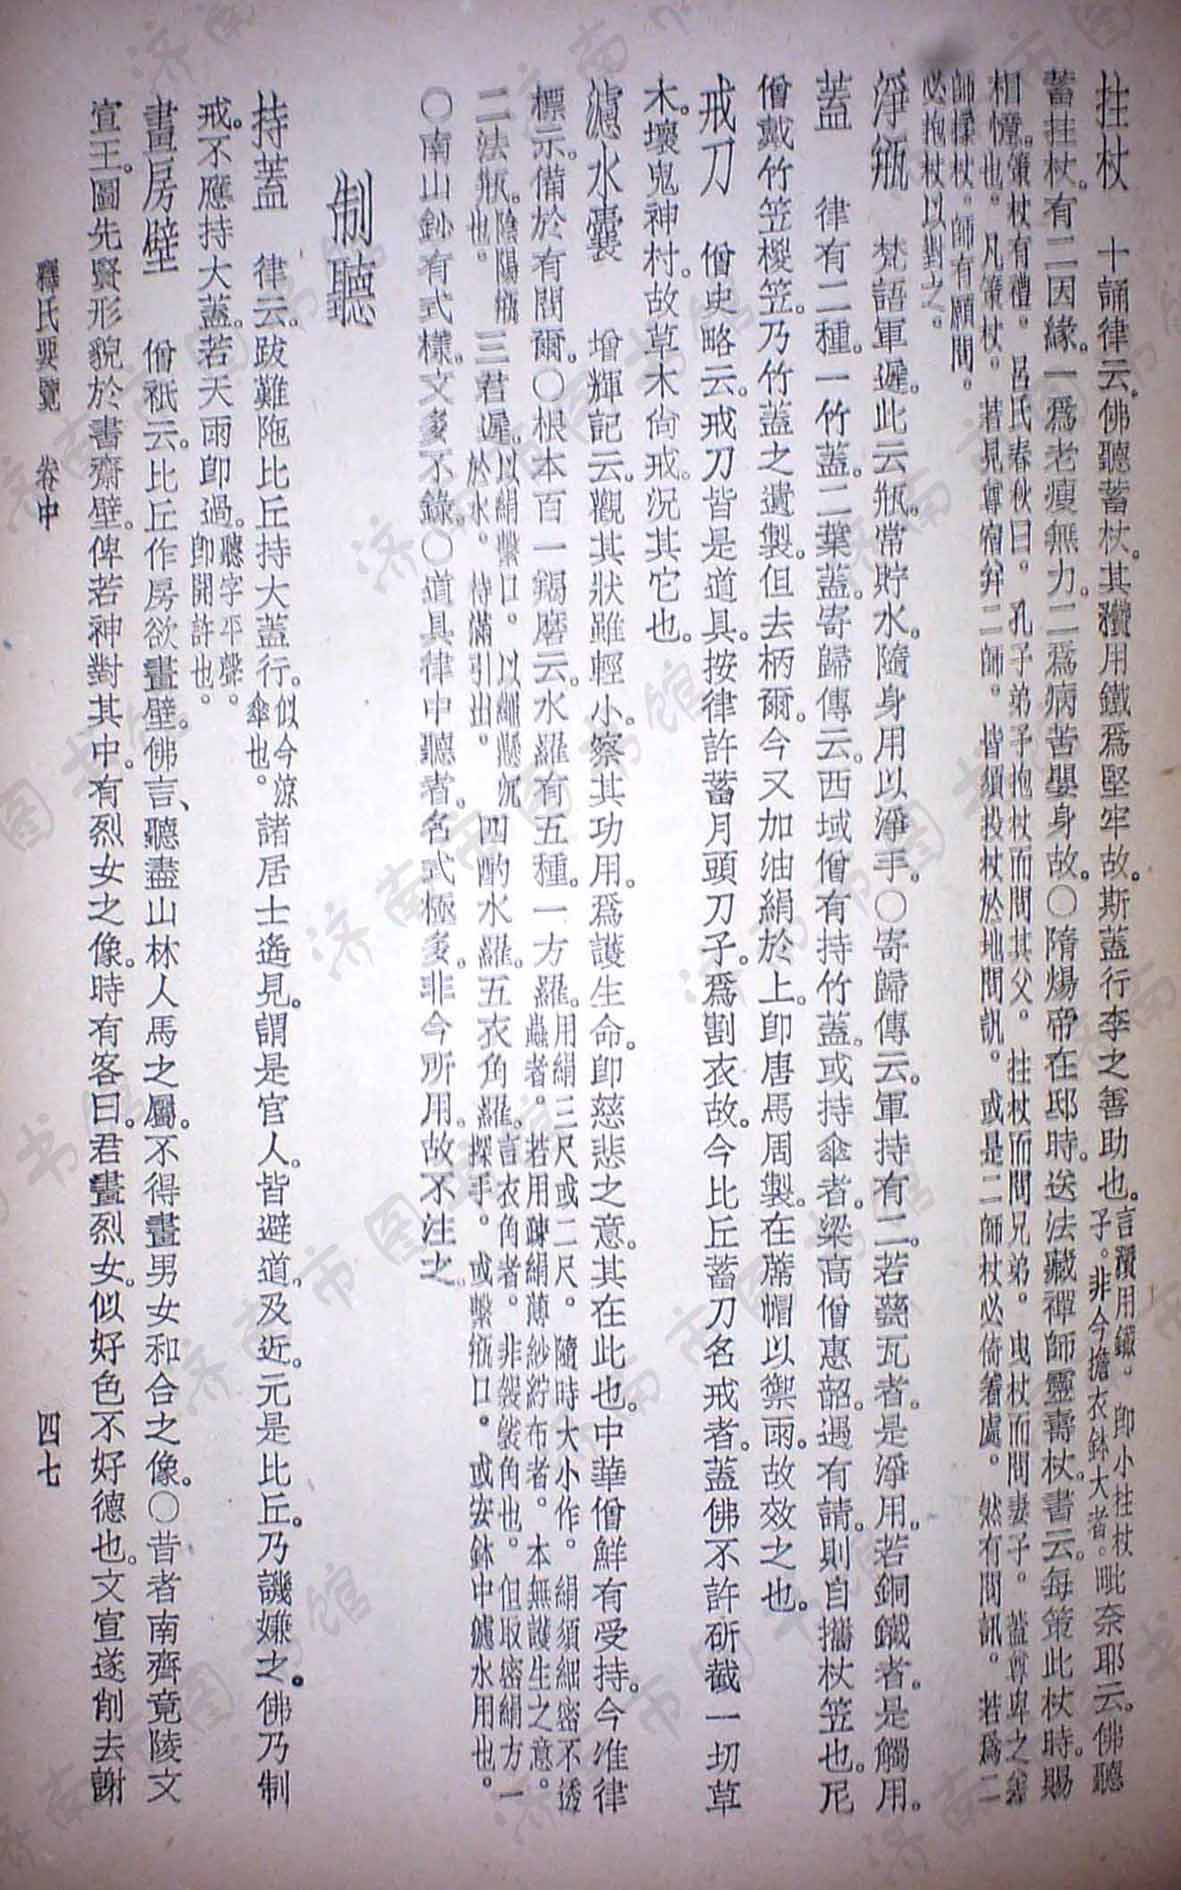 拄杖　十誦律云。佛聽蓄杖。其䥫用鐵爲堅牢故。斯蓋行李之善助也。言䥫用鐵。卽小拄杖子。非今擔衣鉢大者。毗奈耶云。佛聽
蓄拄杖。有二因緣。一爲老瘦無力。二爲病苦嬰身故。〇隋煬帝在邸時。送法藏禪師靈壽杖。書云。每策此杖時。賜
相憶也。策杖有禮。呂氏春秋曰。孔子弟子抱杖而問其父。拄杖而問兄弟。曳杖而問妻子。蓋尊卑之
也。凡策杖。若見尊宿幷二師。皆須投杖於地問訊。或是二師杖必倚著處。然有問訊。若爲二
師檬杖。師有顧問。
必抱杖以對之。
淨瓶　梵語軍遲。此云瓶。常貯水。隨身用以淨手。〇寄歸傳云。軍持有二。若甆瓦者。是淨用。若銅鐵者。是觸用。
蓋　律有二種。一竹蓋。二葉蓋。寄歸傳云。西域僧有持竹蓋。或持傘者。梁高僧惠韶。遇有請。則自攜杖笠也。尼
僧戴竹笠㯶笠。乃竹蓋之遺製。但去柄爾。今又加油絹於上。卽唐馬周製。在蓆帽以禦雨。故效之也。
戒刀　僧史略云。戒刀皆是道具。按律許蓄月頭刀子。爲割衣故。今比丘蓄刀名戒者。蓋佛不許斫截一切草
木。壞鬼神村。故草木尙戒。況其它也。
濾水囊　增輝記云。觀其狀雖輕小。察其功用。爲護生命。卽慈悲之意。其在此也。中華僧鮮有受持。今准律
標示。備於有聞爾。〇根本百一羯磨云。水羅有五種。一方羅。用絹三尺或二尺。隨時大小作。絹須細密不透蟲者。若用疎絹薄紗紵布者。本無護生之意。
二法瓶。陰陽瓶也。三君遲。以絹繫口。以繩懸沉於水。待滿引出。四酌水羅。五衣角羅。言衣角者。非袈裟角也。但取密絹方一探手。或繫瓶口。或安鉢中濾水用也。
〇南山鈔有式樣。文多不錄。〇道具律中聽者。名式極多。非今所用。故不注之。
制聽
持蓋　律云。跋難陁比丘持大蓋行。似今涼傘也。諸居士遙見。謂是官人。皆避道。及近。元是比丘。乃譏嫌之。佛乃制
戒。不應持大蓋。若天雨卽過。聽字平聲。卽開許也。
畫房壁　僧祇云。比丘作房欲畫壁。佛言、聽盡山林人馬之屬。不得畫男女和合之像。〇昔者南齊竟陵文
宣王。圖先賢形貌於書齋壁。俾若神對其中。有烈女之像。時有客曰。君畫烈女。似好色不好德也。文宣遂削去謝
釋氏要覽　卷中　四七